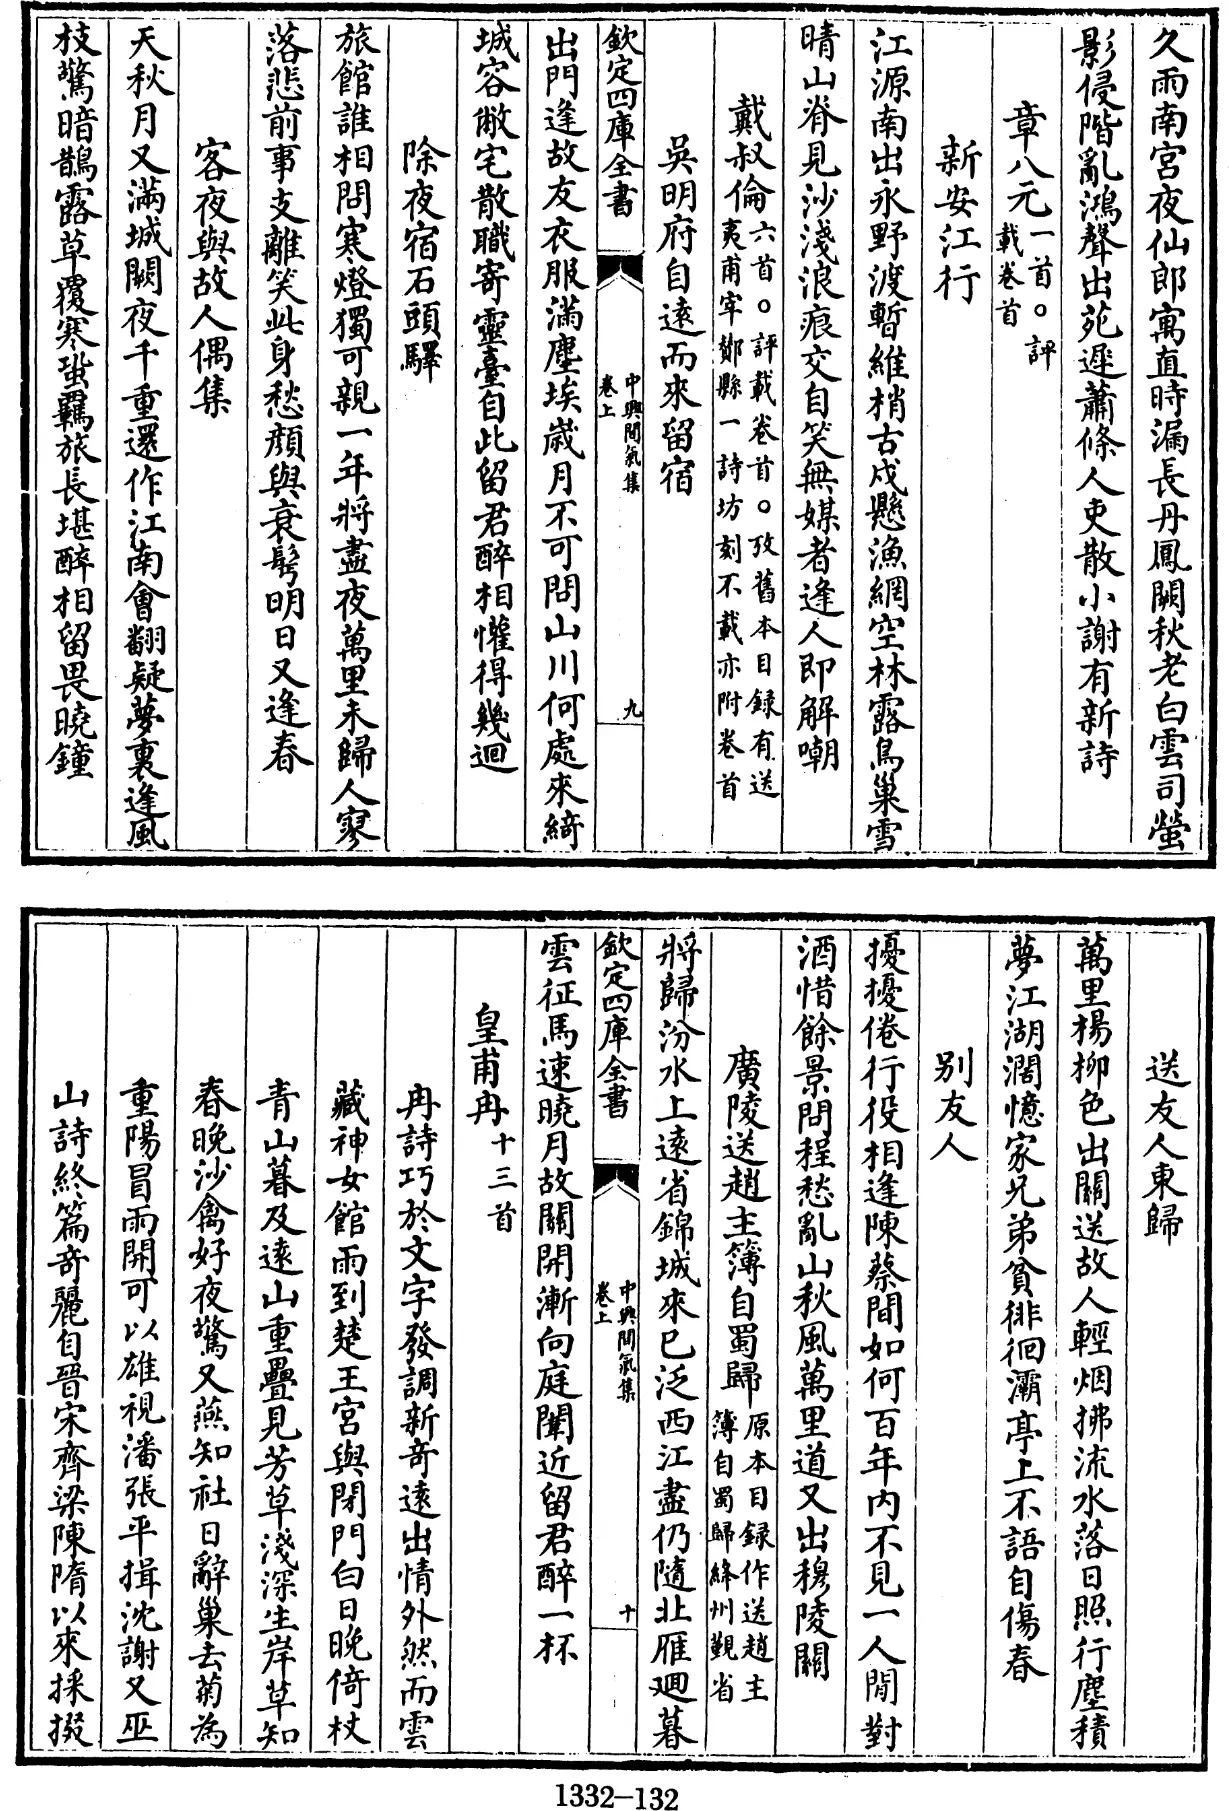 久雨南宮夜仙郎寓直時漏長丹鳳闕秋老白雲司螢
影侵階亂鴻聲出苑遲蕭條人吏散小謝有新詩
章八元一首○評
載卷首
新安江行
江源南出永野渡暫維梢古戍懸漁網空林露鳥巢雪
晴山脊見沙淺浪痕交自笑無媒者逢人即解嘲
戴叔倫六首○評載卷首○攷舊本目録有送
夷甫宰鄮縣一詩坊刻不載亦附卷首
吳明府自遠而來留宿
欽定四庫全書
中興間氣集
卷上
九
出門逢故友衣服滿塵埃嵗月不可問山川何處來綺
城容敝宅散職寄靈臺自此留君醉相懽得幾迴
除夜宿石頭驛
旅館誰相問寒燈獨可親一年將盡夜萬里未歸人寥
落悲前事支離笑此身愁顔與衰鬂明日又逢春
客夜與故人偶集
天秋月又滿城闕夜千重還作江南會翻疑夢裏逢風
枝驚暗鵲露草覆寒蛩羈旅長堪醉相留畏曉鐘
送友人東歸
萬里楊柳色出關送故人輕烟拂流水落日照行塵積
夢江湖濶憶家兄弟貧徘徊灞亭上不語自傷春
別友人
擾擾倦行役相逢陳蔡間如何百年内不見一人閒對
酒惜餘景問程愁亂山秋風萬里道又出穆陵關
廣陵送趙主簿自蜀歸原本目録作送趙主
簿自蜀歸絳州覲省
將歸汾水上遠省錦城來已泛西江盡仍隨北雁廻暮
欽定四庫全書
中興間氣集
卷上
十
雲征馬速曉月故關開漸向庭闈近留君醉一杯
皇甫冉十三首
冉詩巧於文字發調新奇遠出情外然而雲
藏神女館雨到楚王宮與閉門白日晚倚杖
青山暮及遠山重疊見芳草淺深生岸草知
春晚沙禽好夜驚又燕知社日辭巢去菊為
重陽冒雨開可以雄視潘張平揖沈謝又巫
山詩終篇奇麗自晉宋齊梁陳隋以來採掇
1332-132